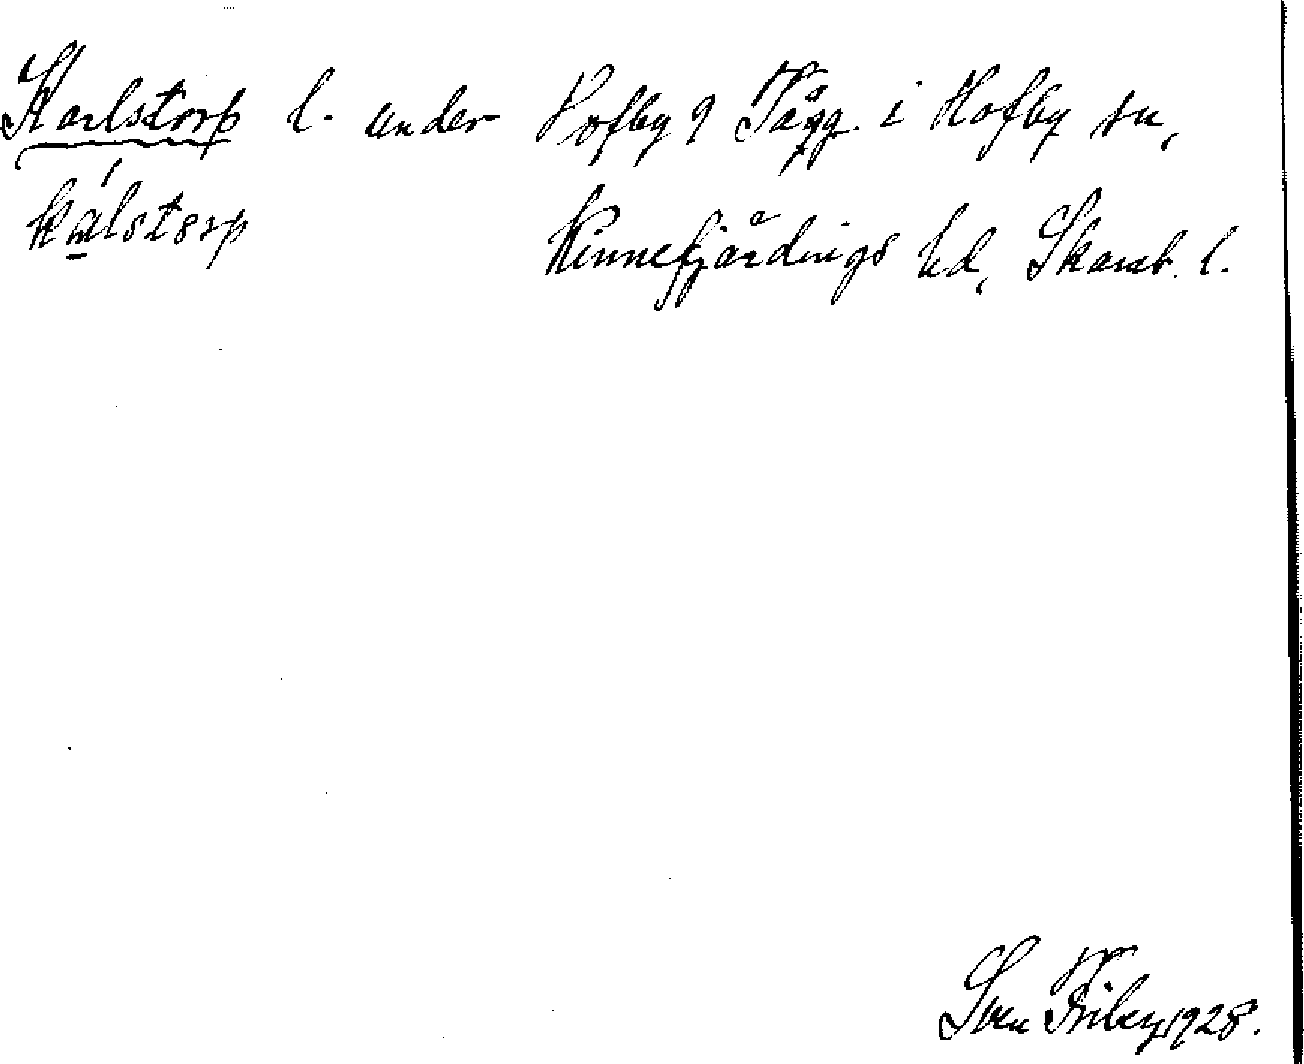 Karlstorp l. under Hofby 9 Tågg. i Hofby sn,
kálstorp Kinnefjärdings hd, Skarab. l.
Sven Friby 1928.